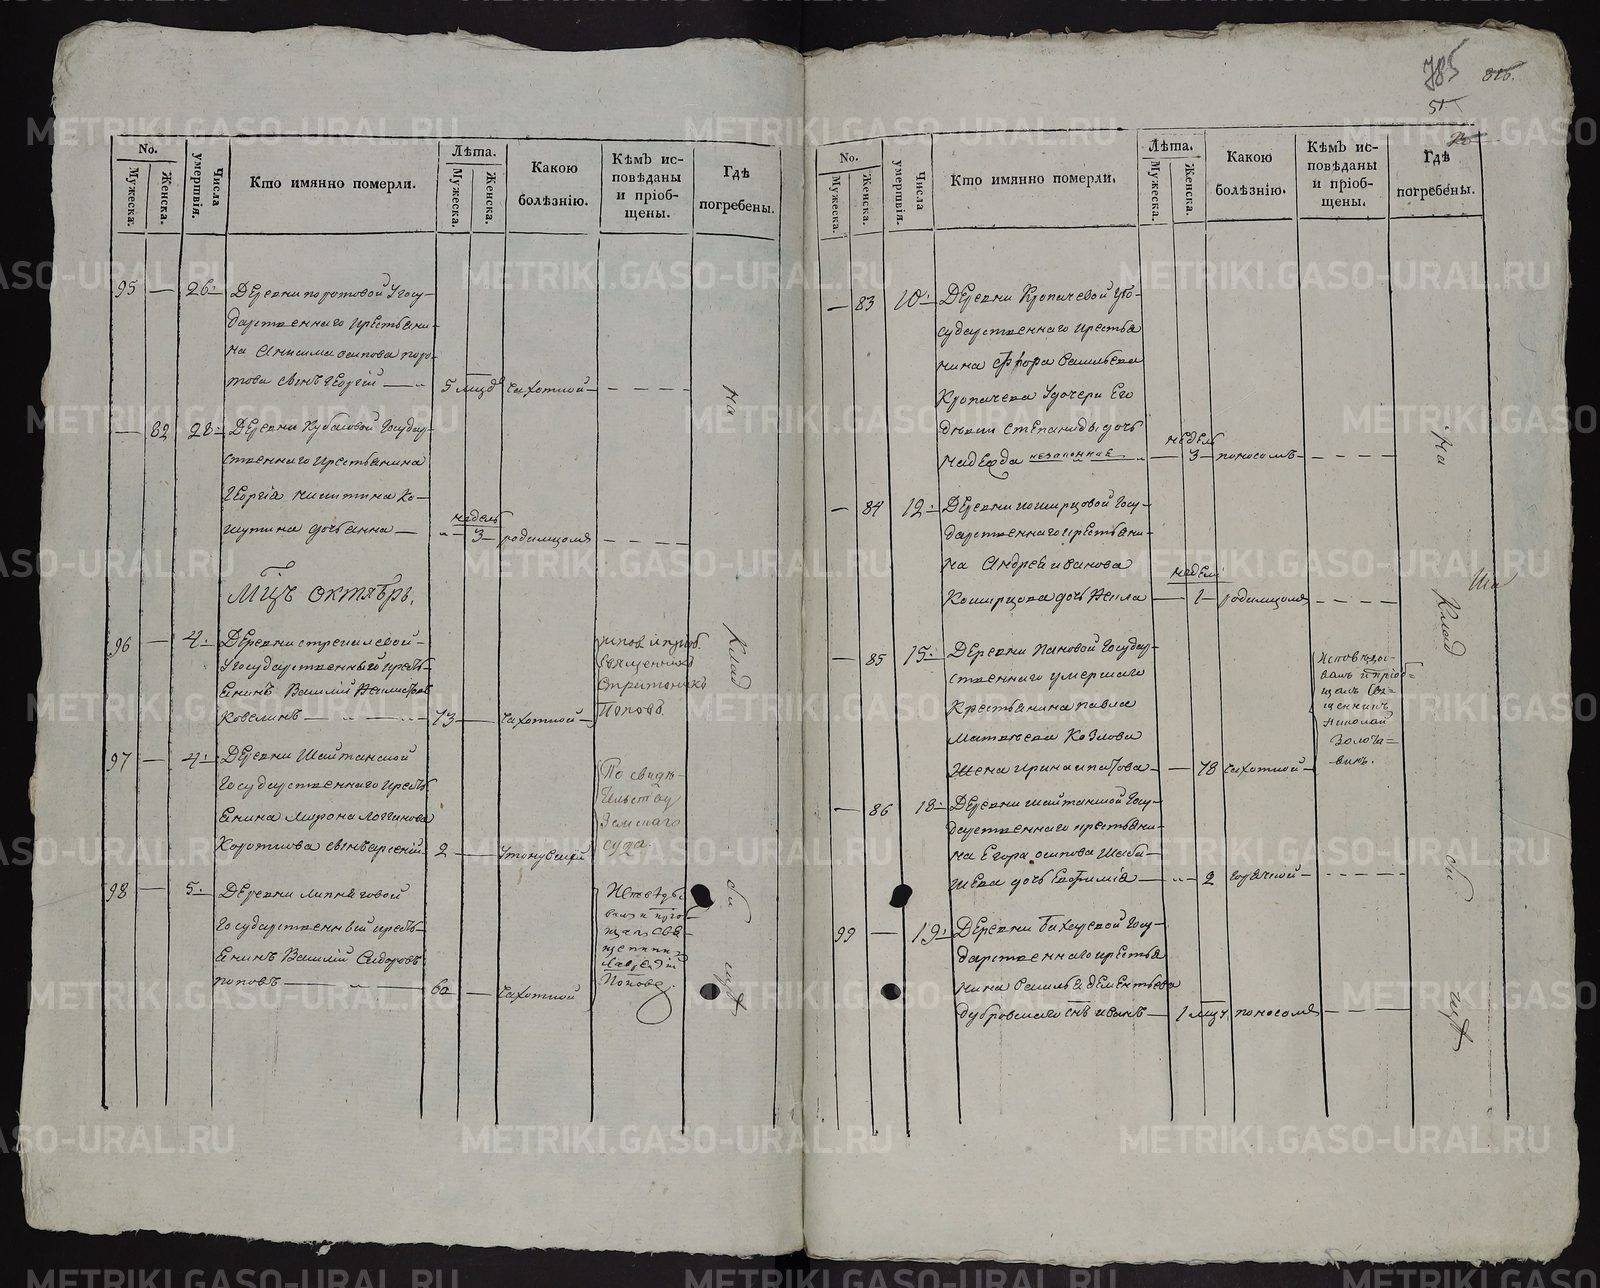 785
816.
51
No.
Мужеска.
Женска.
Числа умершвія.
Кто имянно померли.
Лѣта.
Мужеска.
Женска.
Какою болѣзнію.
Кѣмъ исповѣданы и пріобщены.
Гдѣ погребены.
95 — 26: Деревни поротовой Угосу-
дарственнаго крестьяни-
на Анисима осипова поро-
това сынъ Георгій — 5 мцъ чахоткой
82 28: Деревни Государ-
ственнаго крестьянина
Георгіа никитина Ко-
шутина дочь анна —
недель
3 родимцомъ
Мцъ октябрь.
96 — 4: Деревни
Угосударственный кресть-
янинъ Василій
Ковелинъ — 73 — чахоткой
священникъ
Поповъ.
97 — 4: Деревни Шайтанской
Государственнаго кресть-
янина Мирона Логинова
Короткова сынъ арсеній 2 — утонувшій
По свиде-
тельству
Земскаго
суда.
98 — 5: Деревни липняговой
Государственный кресть-
янинъ Василій Сидоровъ
поповъ — 62 — чахоткой
Поповъ.
на
клад
би
щѣ
No.
Мужеска.
Женска.
Числа умершвія.
Кто имянно померли.
Лѣта.
Мужеска.
Женска.
Какою болѣзнію.
Кѣмъ исповѣданы и пріобщены.
Гдѣ погребены.
— 83 10: Деревни Кропачевой Уго-
сударственнаго крестья
нина Флора Васильева
Кропачева Удочери Его
девки степаниды дочь
надежда незаконная
недель
3 поносомъ
— 84 12: Деревни кошкрцовой Госу-
дарственнаго крестьяни-
на Андрей иванова
Кошкрцова дочь —
недели
1 родимцомъ
— 85 15: Деревни пановой Государ-
ственнаго умершаго
Крестьянина павла
Матвѣева Козлова
Жена ирина ипатова — 78 чахоткой
Исповѣдо-
валъ и пріоб-
щалъ Свя-
щенникъ
Николай
Золота-
винъ.
— 86 18: Деревни шайтанской Госу-
дарственнаго крестьяни-
на Егора осипова Шаби-
шева дочь Евфимія — 2 горячкой
99 — 19: Деревни Бахаревой Госу-
дарственнаго крестья
нина Василья дементьева
дубровскаго снъ иванъ — 1 мцъ поносомъ
На
Клад
би
щѣ